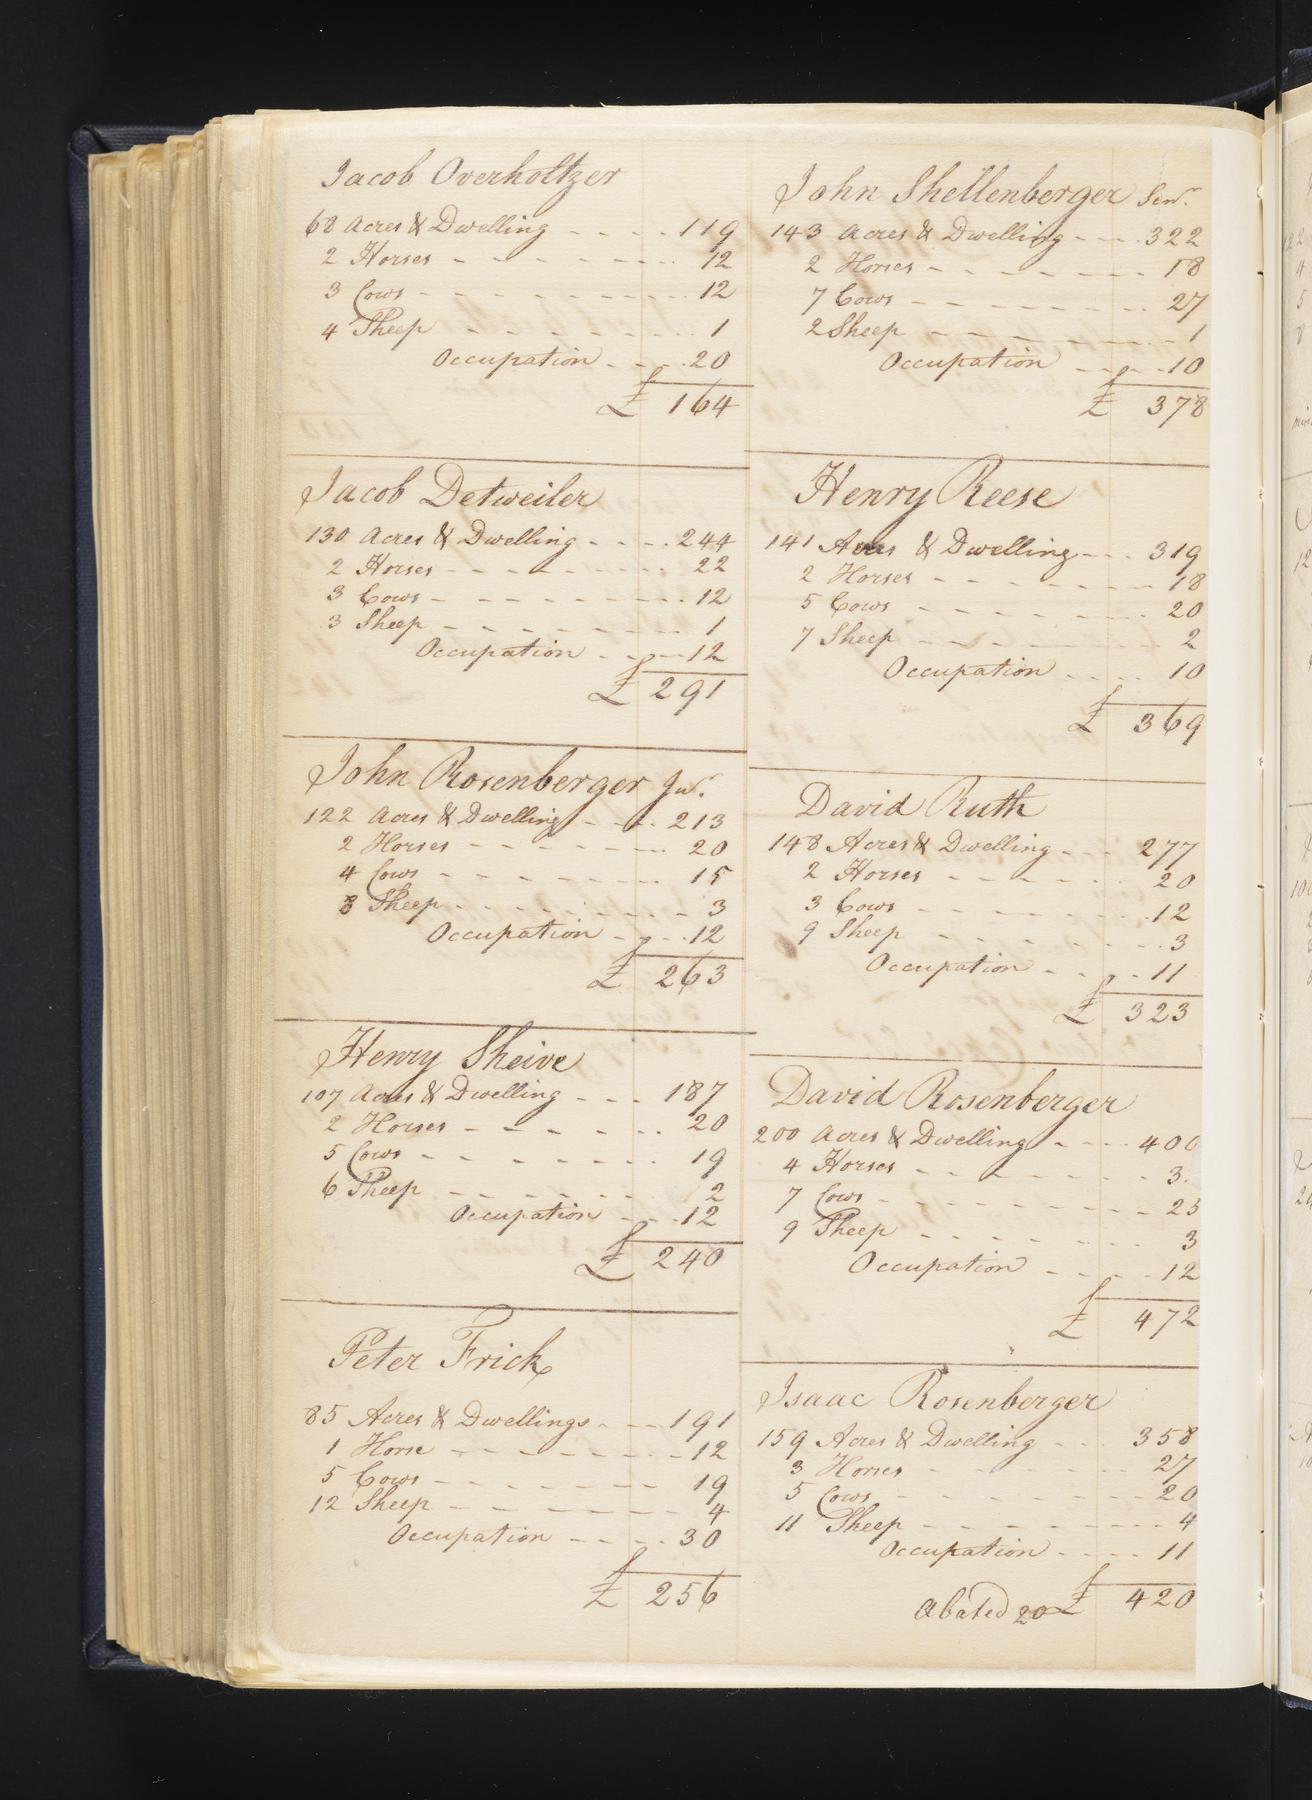 Jacob Overholtzer
68 Acres & Dwelling - - - - 119
2 Horses - - - - - - - 12
3 Cows - - - - - - - - 12
4 Sheep - - - - - - - 1
Occupation - - - - 20
£ 164
Jacob Detweiler
130 Acres & Dwelling - - - - 244
2 Horses - - - - - - - 22
3 Cows - - - - - - - - 12
3 Sheep - - - - - - - 1
Occupation - - - - 12
£ 291
John Rosenberger Junr.
122 Acres & Dwelling - - - - 213
2 Horses - - - - - - - 20
4 Cows - - - - - - - - 15
8 Sheep - - - - - - - 3
Occupation - - - - 12
£ 263
Henry Sheive
107 Acres & Dwelling - - - 187
2 Horses - - - - - - 20
5 Cows - - - - - - - 19
6 Sheep - - - - - - 2
Occupation - - - 12
£ 240
Peter Frick
85 Acres & Dwellings - - - 191
1 Horse - - - - - - - 12
5 Cows - - - - - - - 19
12 Sheep - - - - - - 4
Occupation - - - - 30
£ 256
John Shellenberger Senr.
143 Acres & Dwelling - - - - 322
2 Horses - - - - - - - 18
7 Cows - - - - - - - 27
2 Sheep - - - - - - - 1
Occupation - - - - 10
£ 378
Henry Reese
141 Acres & Dwelling - - - 319
2 Horses - - - - - - 18
5 Cows - - - - - - - 20
7 Sheep - - - - - - 2
Occupation - - - - 10
£ 369
David Ruth
148 Acres & Dwelling - - - 277
2 Horses - - - - - - 20
3 Cows - - - - - - - 12
9 Sheep - - - - - - - 3
Occupation - - - - 11
£ 323
David Rosenberger
200 Acres & Dwelling - - - - 400
4 Horses - - - - - - - 3
7 Cows - - - - - - - - 25
9 Sheep - - - - - - - 3
Occupation - - - - 12
£ 472
Isaac Rosenberger
159 Acres & Dwelling - - - 358
3 Horses - - - - - - 27
5 Cows - - - - - - - 20
11 Sheep - - - - - - - 4
Occupation - - - - 11
Abated 20 £ 420